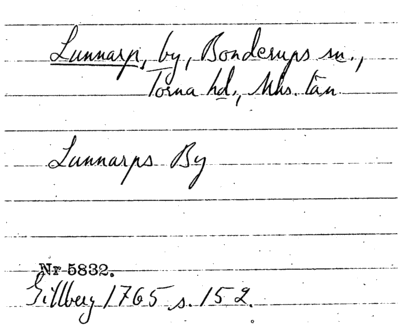 Lunnarp, by, Bonderups sn.,
Torna hd., Mhs. län
Lunnarps By
Nr 5832.
Gillberg 1765 s. 152.